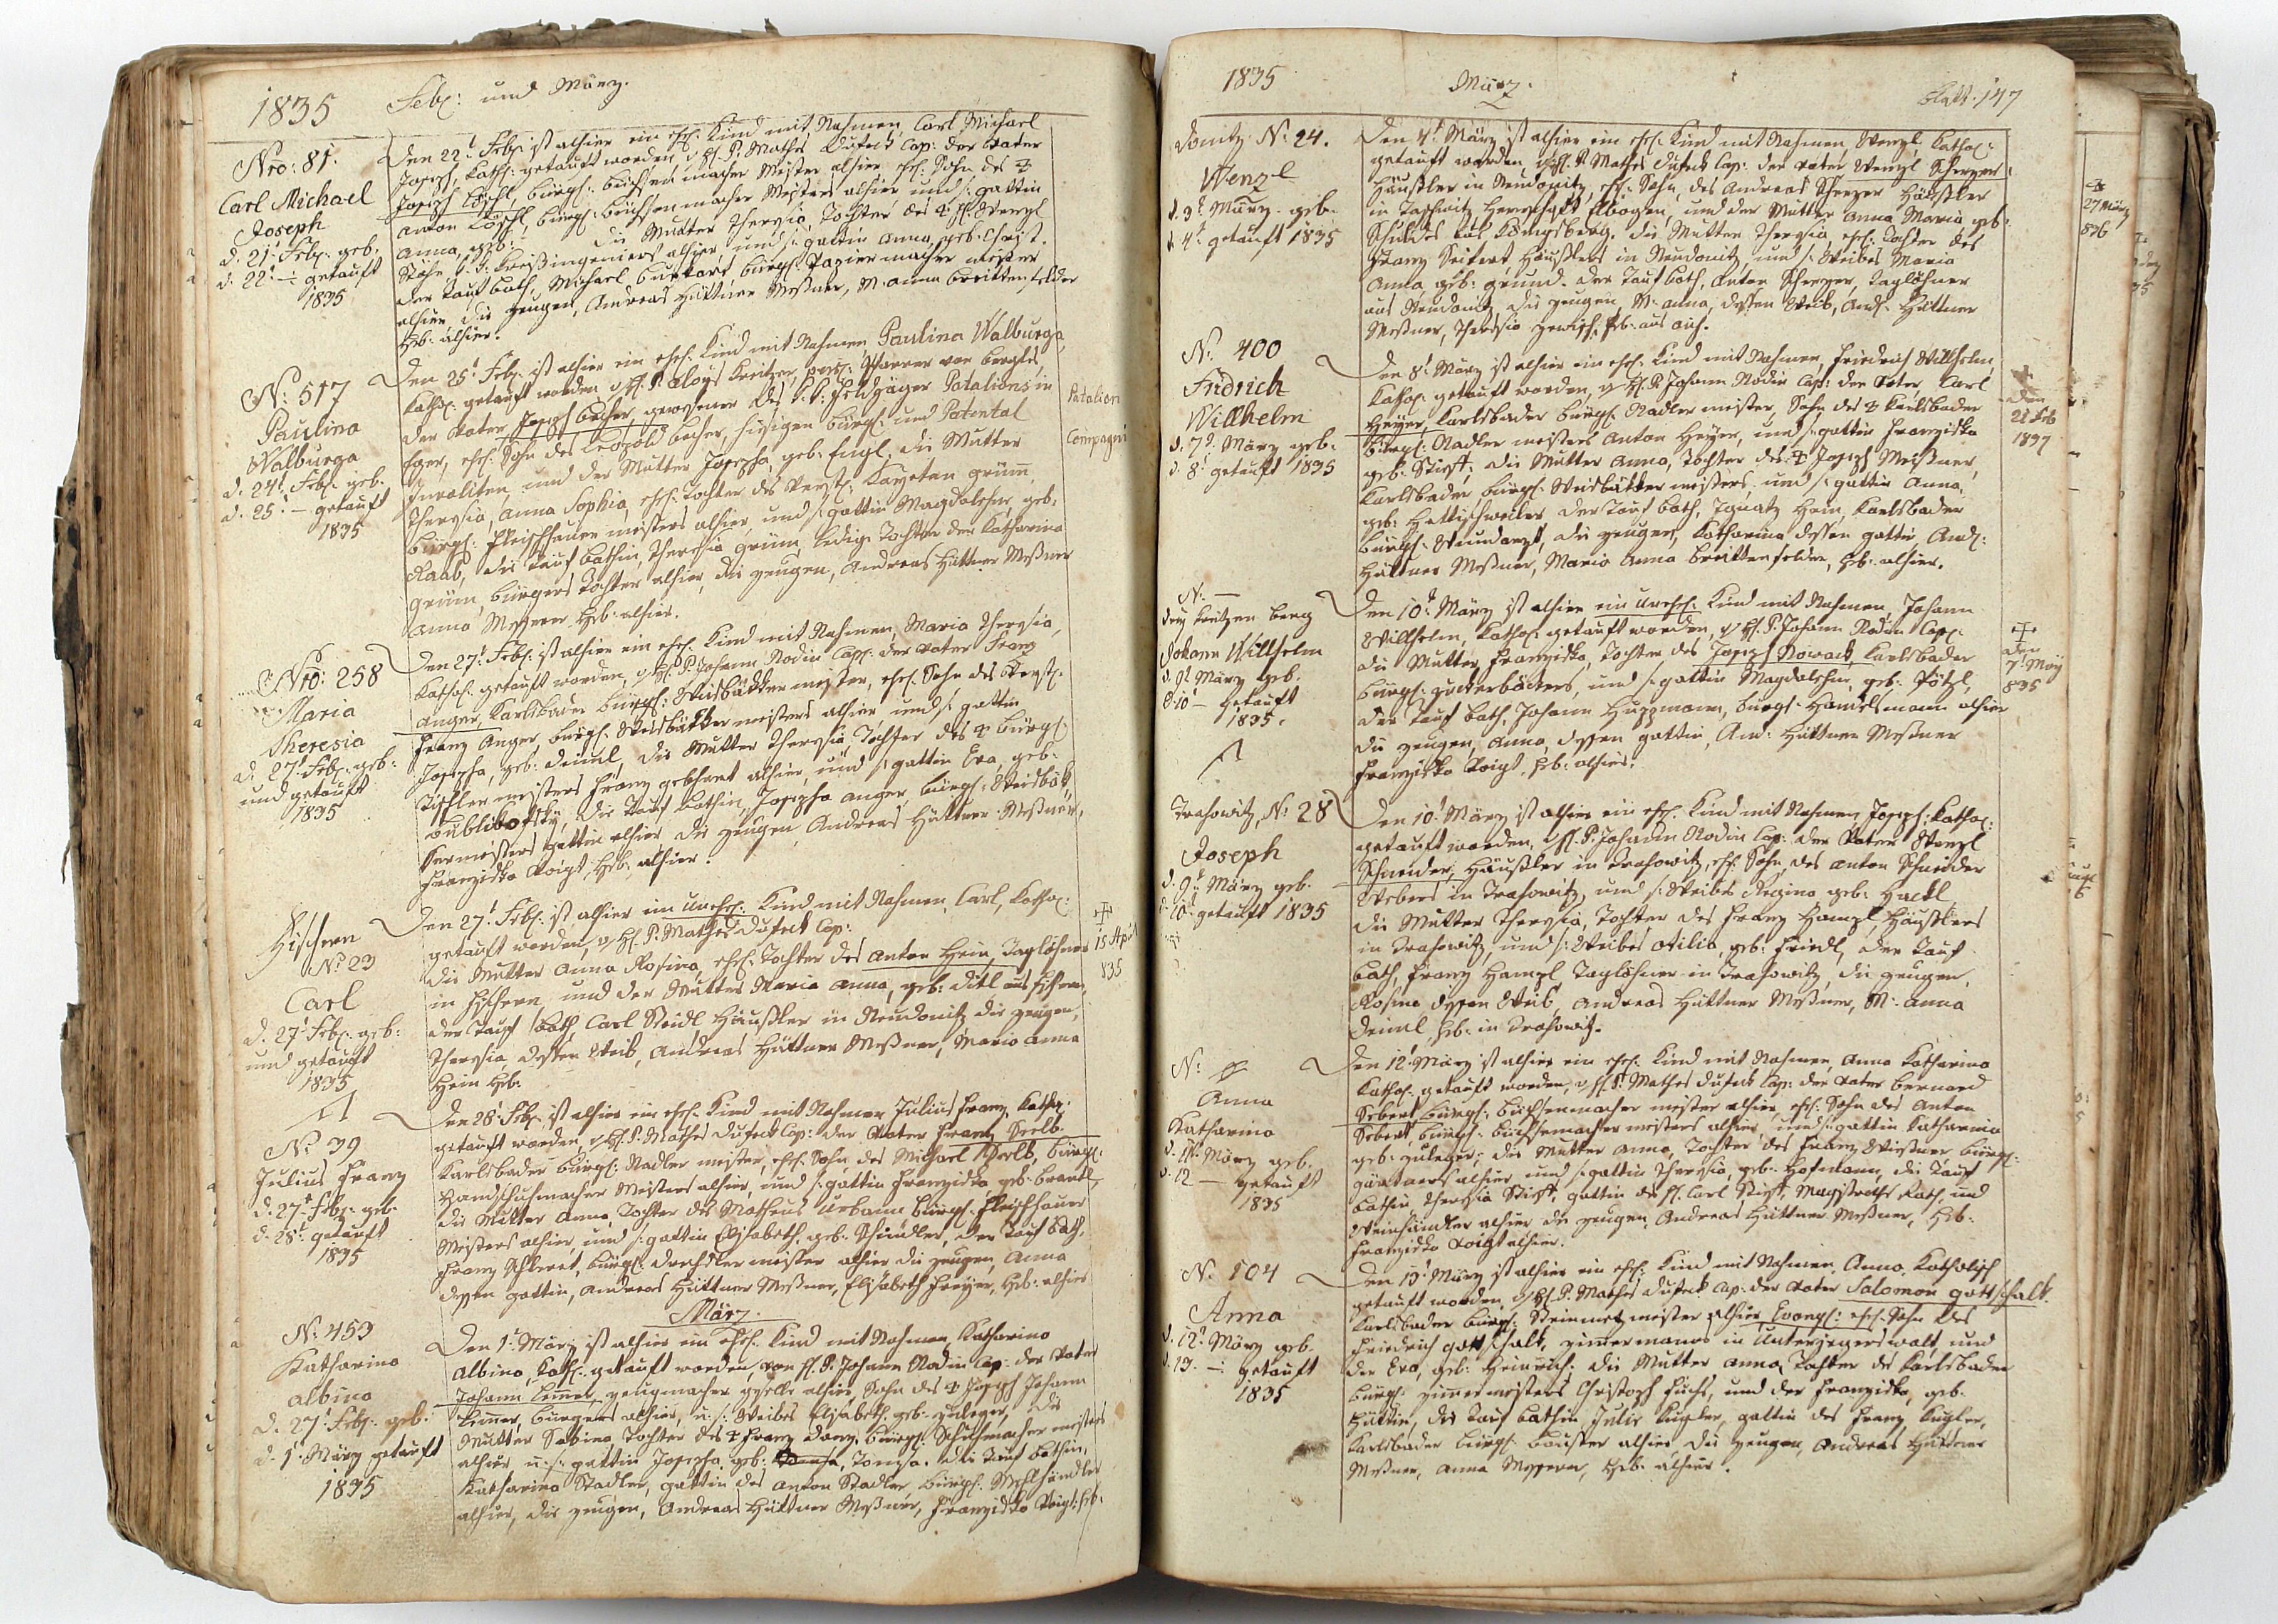 1835 Feb: und März.
Nro: 81.
Carl Michael
Joseph
d. 21t Feb: geb.
d. 22t -:- getauft
1835
Den 22t Feb: ist alhier ein ehel: Kind mit Nahmen Carl Michael
Joseph, Kath: getauft worden, v H: P. Mathes Dufeck Cap: der Vater
Joseph Löschl, bürgl: büchsen macher Meister alhier ehel: Sohn des
Anton Löschl, bürgl: büchsen macher Meisters alhier und s: gattin
Anna, geb: die Mutter Theresia, Tochter des H: Wenzl
K: K: Kreißingenieurs alhier, und s: gattin Anna, geb. Christ.
der Tauf bath, Michael burkart bürgl:
alhier die zeugen, Andreas Hüttner Meßner, M: anna breitten felder
Heb: alhier.
N: 517
Paulina
Walburga
d. 24t Feb: geb.
d. 25t - getauft
1835
Den 25t Feb: ist alhier ein ehel: Kind mit Nahmen Paulina Walburga,
Kathol: getauft worden v H: P. Aloys Kreitzer, Pfarrer von
der Vater Joseph becher, gewesener des K: K: Feldjäger Patalions in
Eger, ehel: Sohn des Leopold becher, hiesigen bürgl: und
Invaliten, und der Mutter Josepha, geb: Engl, die Mutter
Theresia, Anna Sophia, ehel: Tochter des Verst: Kayetan grüm,
bürgl: Fleischhauer meisters alhier, und s: gattin Magdalena, geb:
Raab, die Tauf bathin, Theresia grüm, ledige Tochter der Katharina
grüm, bürgers Tochter alhier, die zeugen, Andreas Hüttner Meßner
Anna Messerer Heb: alhier.
Patalion
Compagni
Nro: 258
Maria
Theresia
d. 27t Feb: geb:
und getauft
1835
Den 27t Feb: ist alhier ein ehel: Kind mit Nahmen, Maria Theresia,
Kathol: getauft worden, v H: P. Johann Rodin Cap: der Vater Franz
Anger, Karlsbader bürgl: Weisbäkker meister, ehel: Sohn des Verst:
Franz Anger, bürgl: Weisbäkker meisters alhier und s: gattin
Josepha, geb: Deiml, die Mutter Theresia, Tochter des bürgl:
Tischler meisters Franz gebhart alhier, und s: gattin Eva, geb:
die Tauf bathin, Josepha Anger, bürgl: Weisbäk
kermeisters gattin alhier die zeugen, Andreas Hüttner Meßner,
Franziska Voigt, Heb: alhier.
Fischern
No 23
Carl
d. 27t Feb: geb:
und getauft
1835
Den 27t Feb: ist alhier ein unehel: Kind mit Nahmen, Carl, Kathol:
getauft worden, v H: P. Mathes Dufeck Cap:
die Mutter Anna Rosina, ehel: Tochter des Anton Hein, Taglöhner
in Fischern, und der Mutter Maria Anna, geb: Ditl aus Fischern,
der Tauf bath, Carl Steidl Häußler in Neudonitz die zeugen,
Theresia, dessen Weib, Andreas Hüttner Meßner, Maria Anna
Hein Heb:
15 Apil
835
No 39
Julius Franz
d. 27t Feb: geb.
d. 28t: getauft
1835
Den 28t Feb: ist alhier ein ehel: Kind mit Nahmen Julius Franz, Kathol:
getauft worden, v H: P. Mathes Dufeck Cap: der Vater Franz Seelb.
Karlsbader bürgl: Nadler meister, ehel: Sohn, des Michael Seelb, bürgl:
Handschuhmacher Meisters alhier, und s: gattin Franziska geb: brandl,
die Mutter Anna, Tochter des Matheus Urbann bürgl: Fleischhauer
Meisters alhier, und s: gattin Elisabeth, geb: Schindler, der Tauf bath,
Franz bürgl: Drechsler meister alhier die zeugen, Anna
dessen gattin, Andreas Hüttner Meßner, Elisabeth Heb: alhier
März.
N: 453
Katharina
Albina
d. 27t Feb: geb:
d. 1t März getauft
1835
Den 1t März ist alhier ein ehel: Kind mit Nahmen, Katharina
Albina, Kath: getauft worden, von H: P. Johann Rodin Cap: der Vater
Johann Zeugmacher gselle alhier, Sohn des Joseph Johann
bürgers alhier, u: s: Weibes Elisabeth, geb: Zuleger, die
Mutter Sabina Tochter des Franz bürgl: Schuhmacher meisters
alhier, u: s: gattin Josepha, geb: Tomsa. die Tauf bathin,
Katharina Stadler, gattin des Anton Stadler, bürgl: Mehlhändler
alhier, die zeugen, Andreas Hüttner Meßner, Franziska Voigt: Heb:
1835 März. blatt. 147
Donitz N: 24.
Wenzl
d. 3t März. geb.
d. 4t getauft 1835
Den 4t März ist alhier ein ehel: Kind mit Nahmen, Wenzl, Kathol:
getauft worden, v H: P. Mathes Dufeck Cap: der Vater Wenzl Scherzer,
Häußler in Neudonitz, ehel: Sohn, des Andreas Scherzer Häußler
in Taschwitz Herrschaft Elbogen, und der Mutter Anna Maria geb:
aus Königsberg. die Mutter Theresia, ehel: Tochter des
Franz Seifert, Häußlers in Neudonitz, und s: Weibes Maria
Anna, geb: grund. der Tauf bath, Anton Scherzer, Taglöhner
aus Neudonitz die zeugen, M: anna, dessen Weib, And: Hüttner
Meßner, Theresia Heb: aus
N: 400
Fridrich
Willhelm
d. 7t März geb.
d. 8t getauft 1835
Den 8t März ist alhier ein ehel: Kind mit Nahmen, Friedrich Willhelm,
Kathol: getauft worden, v H: P. Johann Rodin Cap: der Vater, Carl
Heyer, Karlsbader bürgl: Nadler meister, Sohn des Karlsbader
bürgl: Nadler meisters Anton Heyer, und s: gattin Franziska
geb: Stieft, die Mutter Anna, Tochter des Joseph Meißner,
Karlsbader bürgl: Weisbäkker meisters und s: gattin Anna,
geb: Hettischweiler der Tauf bath, Ignatz Hein, Karlsbader
bürgl: Wundarzt, die zeugen, Katharina dessen gattin And:
Hüttner Meßner, Maria Anna breittenfelder, Heb: alhier.
den
21 Feb
1837
N: —
Drey Kreitzen berg
Johann Willhelm
d. 9t März geb.
d. 10 - getauft
1835.
Den 10t März ist alhier ein unehel: Kind mit Nahmen, Johann
Willhelm, Kathol: getauft worden, v H: P. Johann Rodin Cap:
die Mutter, Franziska, Tochter des Joseph Nowack, Karlsbader
bürgl: zuckerbäckers, und s: gattin Magdalena, geb: Pötzl,
der Tauf bath, Johann Huppmann, bürgl: Handelsmann alhier
die zeugen, Anna, dessen gattin, And: Hüttner Meßner
Franziska Voigt, Heb: alhier.
den
7 May
835
Drahowitz, N: 28
Joseph
d. 9t März geb.
d. 10t getauft 1835
Den 10t März ist alhier ein ehel: Kind mit Nahmen, Joseph: Kathol:
getauft worden, v H: P. Johann Rodin Cap: der Vater Wenzl
Schneider, Häußler in Drahowitz, ehel: Sohn, des Anton Schneider
Webers in Drahowitz, und s: Weibes Regina geb: Hackl
die Mutter Theresia, Tochter des Franz Hampl, Häußlers
in Drahowitz, und s: Weibes Otilia, geb: Friedl, der Tauf
bath, Franz Hampl, Taglöhner in Drahowitz, die zeugen,
Rosina dessen Weib, Andreas Hüttner Meßner, M: Anna
Deiml Heb: in Drahowitz.
N:
Anna
Katharina
d. 11t März geb.
d. 12 — getauft
1835
Den 12t März ist alhier ein ehel: Kind mit Nahmen, Anna Katharina
Kathol: getauft worden, v H: P. Mathes Dufeck Cap: der Vater bernard
Sebert bürgl: büchsenmacher meister alhier, ehel: Sohn des Anton
Sebert, bürgl: büchsenmacher meisters alhier und s: gattin Katharina
geb: Zuleger, die Mutter Anna, Tochter des Franz Meßner bürgl:
gärtners alhier und s: gattin Theresia, geb: Hofmann, die Tauf
bathin Theresia Stieft, gattin des H: Carl Stieft, Magistraths Rath, und
Weinhändler alhier die zeugen, Andreas Hüttner Meßner, Heb:
Franziska Voigt alhier.
N: 104
Anna
d. 12t März geb.
d. 13. -:- getauft
1835
Den 13t März ist alhier ein ehel: Kind mit Nahmen, Anna, Katholisch
getauft worden, v H: P. Mathes Dufeck Cap: der Vater Salomon gottschalk.
Karlsbader bürgl: Steinmetz meister alhier Evangl: ehel: Sohn des
Friedrich gottschalk, zimmermanns in und
der Eva, geb: Heinrich. die Mutter Anna, Tochter des Karlsbader
bürgl: zimmermeisters Christoph Fuchs, und der Franziska, geb.
Hüttin, die Tauf bathin Julie Kugler, gattin des Franz Kugler,
Karlsbader bürgl: alhier die zeugen, Andreas Hüttner
Meßner, Anna Messerer, Heb: alhier.
27 März
836